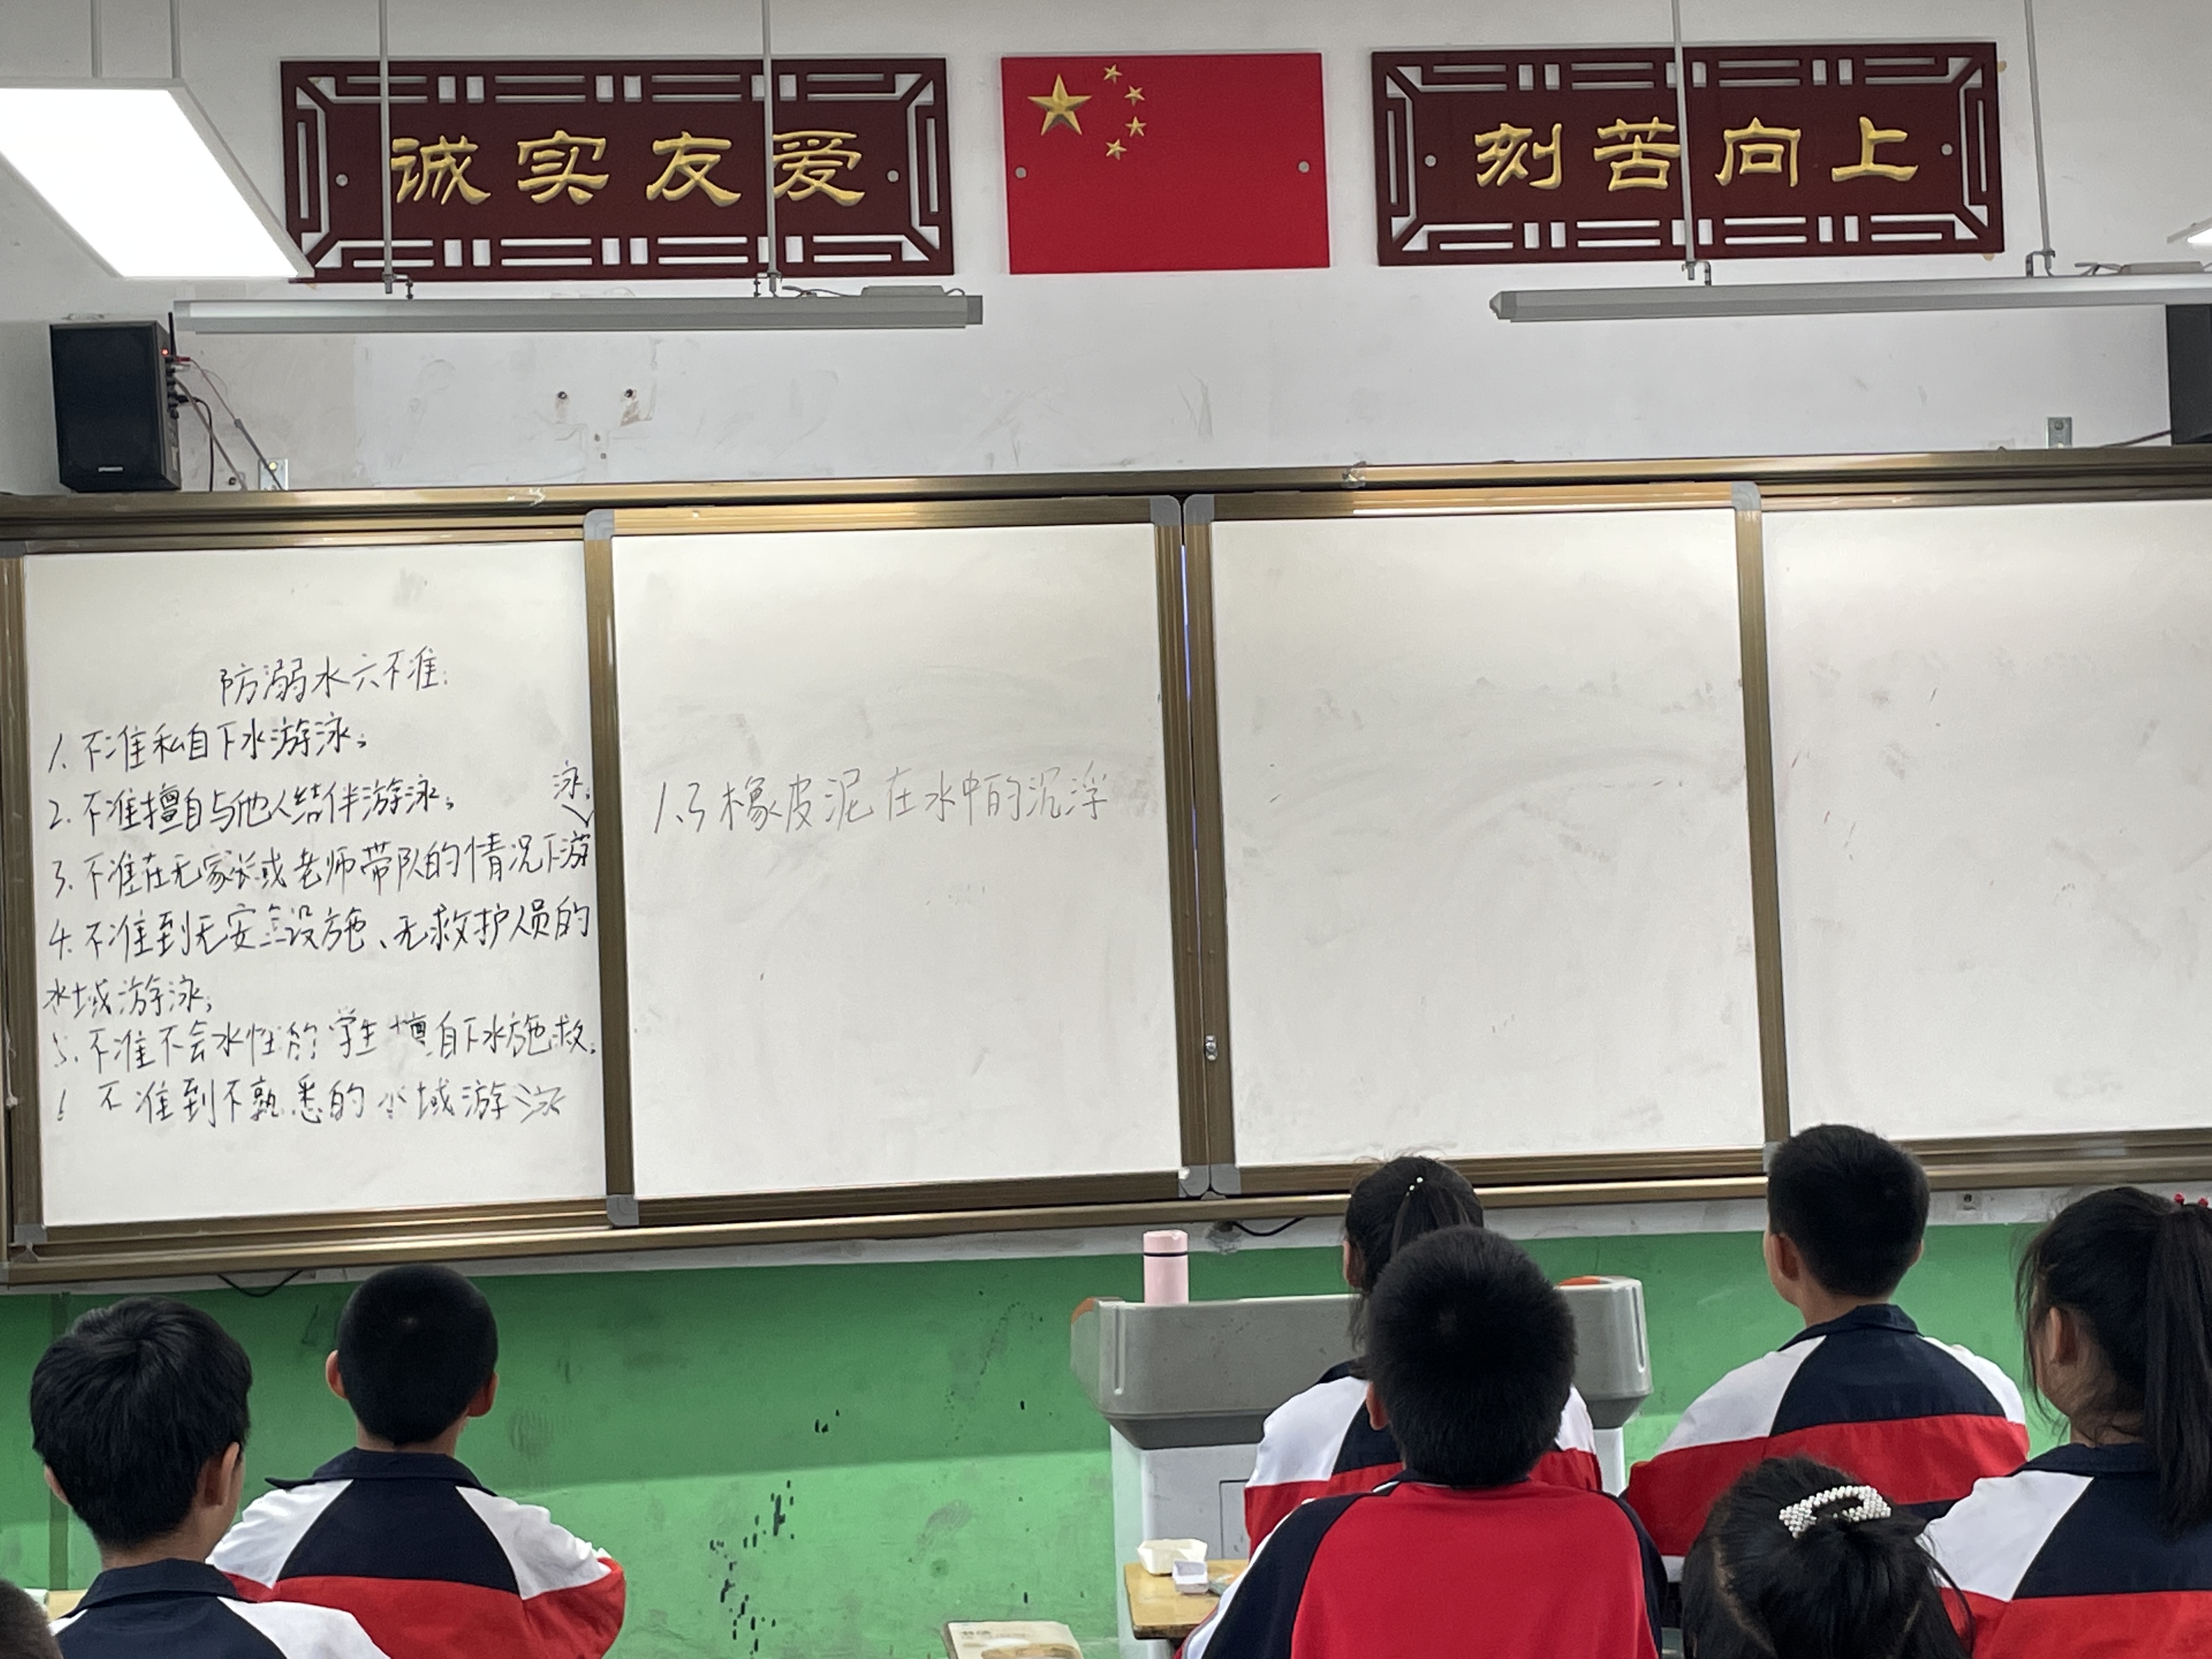 诚实友爱
刻苦向上
防溺水六不准:
1.不准私自下水游泳;
2.不准擅自与他人结伴游泳;
3.不准在无家长或老师带队的情况下游泳;
4.不准到无安全设施、无救护人员的
水域游泳;
5.不准不会水性的学生擅自下水施救;
6 不准到不熟悉的水域游泳
1.3橡皮泥在水中的沉浮